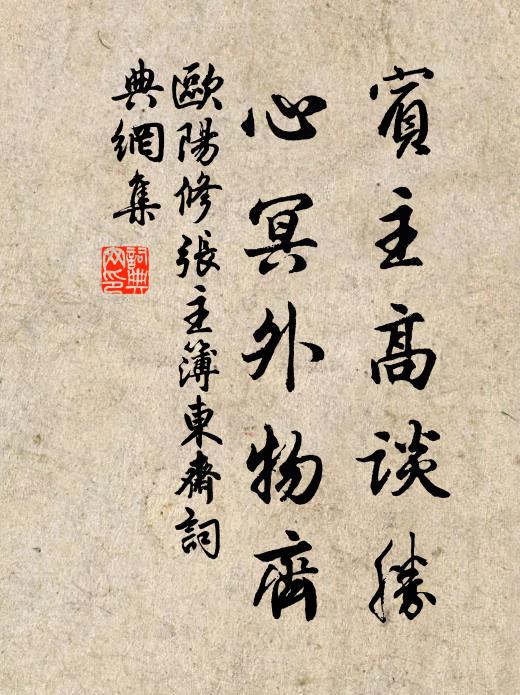 賓主高談勝
心冥外物齊
歐陽修張主簿東齋詞
典網集
詞典
文印